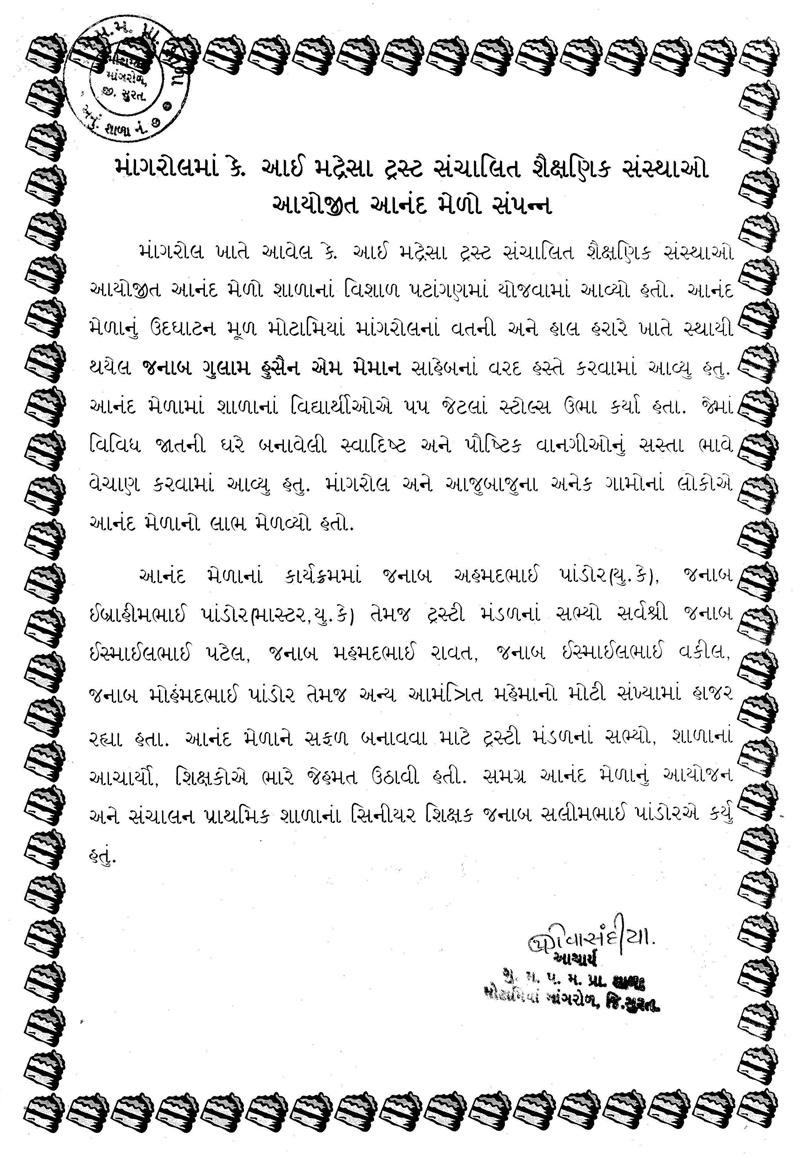 માંગરોળ,
જી. સુરત.
અનું. શાળા નં.
માંગરોલમાં કે. આઈ મદ્રેસા ટ્રસ્ટ સંચાલિત શૈક્ષણિક સંસ્થાઓ
આયોજીત આનંદ મેળો સંપન્ન
માંગરોલ ખાતે આવેલ કે. આઈ મદ્રેસા ટ્રસ્ટ સંચાલિત શૈક્ષણિક સંસ્થાઓ
આયોજીત આનંદ મેળો શાળાનાં વિશાળ પટાંગણમાં યોજવામાં આવ્યો હતો. આનંદ
મેળાનું ઉદઘાટન મૂળ મોટામિયાં માંગરોલનાં વતની અને હાલ હરારે ખાતે સ્થાયી
થયેલ જનાબ ગુલામ હુસૈન એમ મેમાન સાહેબનાં વરદ હસ્તે કરવામાં આવ્યુ હતુ.
આનંદ મેળામાં શાળાનાં વિદ્યાર્થીઓએ ૫૫ જેટલાં સ્ટોલ્સ ઉભા કર્યા હતા. જેમાં
વિવિધ જાતની ઘરે બનાવેલી સ્વાદિષ્ટ અને પૌષ્ટિક વાનગીઓનું સસ્તા ભાવે
વેચાણ કરવામાં આવ્યુ હતુ. માંગરોલ અને આજુબાજુના અનેક ગામોનાં લોકોએ
આનંદ મેળાનો લાભ મેળવ્યો હતો.
આનંદ મેળાનાં કાર્યક્રમમાં જનાબ અહમદભાઈ પાંડોર(યુ.કે), જનાબ
ઈબ્રાહીમભાઈ પાંડોર(માસ્ટર,યુ.કે) તેમજ ટ્રસ્ટી મંડળનાં સભ્યો સર્વશ્રી જનાબ
ઈસ્માઈલભાઈ પટેલ, જનાબ મહમદભાઈ રાવત, જનાબ ઈસ્માઈલભાઈ વકીલ,
જનાબ મોહંમદભાઈ પાંડોર તેમજ અન્ય આમંત્રિત મહેમાનો મોટી સંખ્યામાં હાજર
રહ્યા હતા. આનંદ મેળાને સફળ બનાવવા માટે ટ્રસ્ટી મંડળનાં સભ્યો, શાળાનાં
આચાર્યો, શિક્ષકોએ ભારે જેહમત ઉઠાવી હતી. સમગ્ર આનંદ મેળાનું આયોજન
અને સંચાલન પ્રાથમિક શાળાનાં સિનીયર શિક્ષક જનાબ સલીમભાઈ પાંડોરએ કર્યુ
હતું.
આચાર્ય
મ. પ. મ. પ્રા. શાળા
મોટામિયાં માંગરોળ, જિ.સુરત.